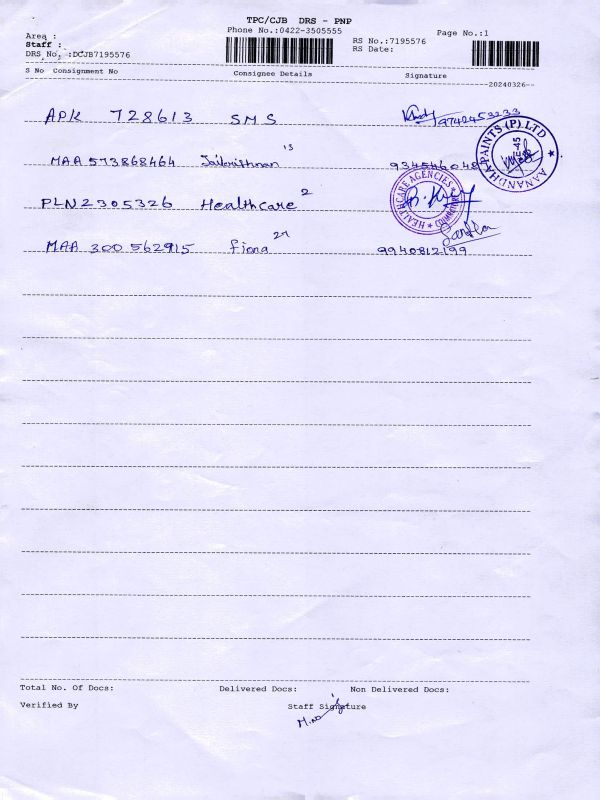 TPC/CJB DRS - PNP
Phone No.:0422-3505555
Page No.:1
Area :
Staff :
DRS No. :DCJB7195576
RS No.:7195576
RS Date:
S No Consignment No Consignee Details Signature
20240326
APK 728613 SMS 9742453233
MAA 573868464 Jaikrishnan 13
PLN2305326 Healthcare 2
MAA 300562915 fiona 27 9940812199
AANANDHA PAINTS (P) LTD
HEALTHCARE AGENCIES
Total No. Of Docs: Delivered Docs: Non Delivered Docs:
Verified By Staff Signature